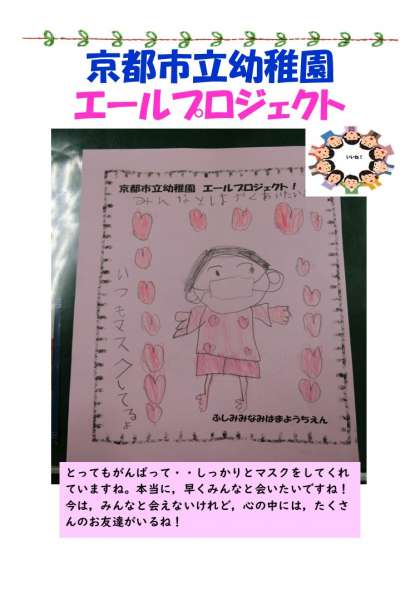 京都市立幼稚園
エールプロジェクト
いいね！
京都市立幼稚園　エールプロジェクト！
みんなとはやくあいたい
いつもマスクしてるよ
ふしみみなみはまようちえん
とってもがんばって・・しっかりとマスクをしてくれ
ていますね。本当に，早くみんなと会いたいですね！
今は，みんなと会えないけれど，心の中には，たくさ
んのお友達がいるね！